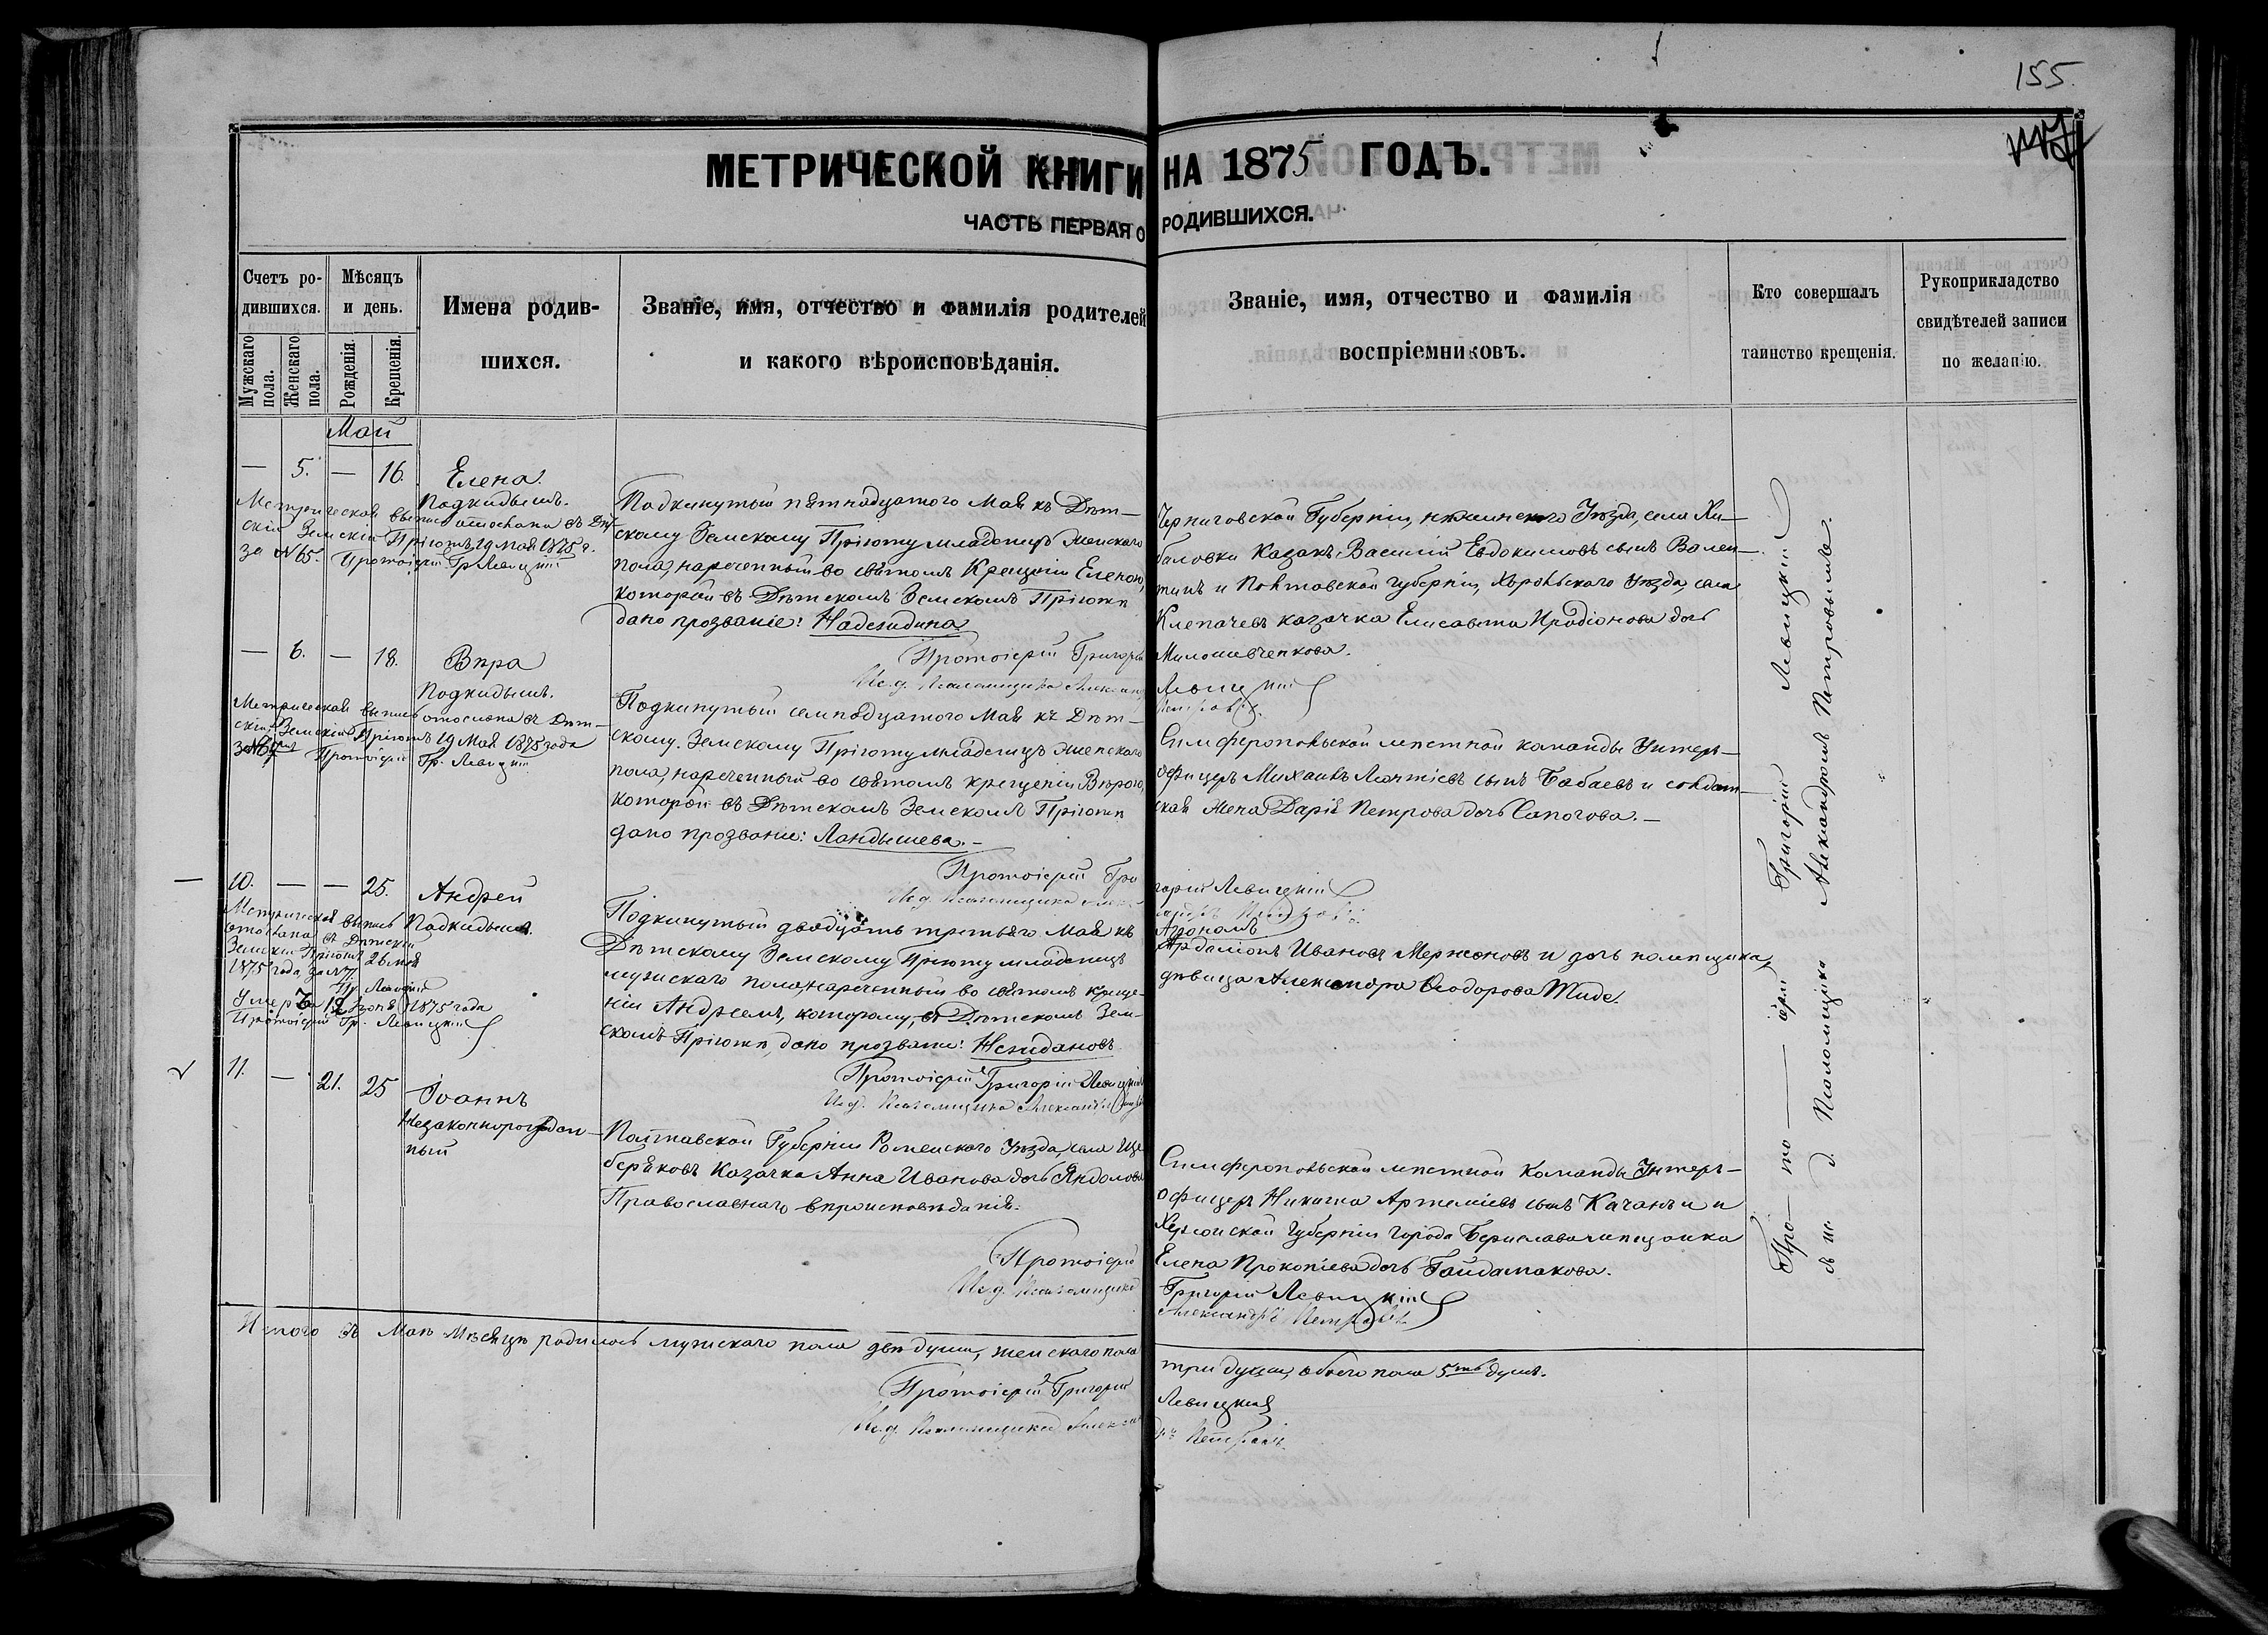 155.
МЕТРИЧЕСКОЙ КНИГИ НА 1875 ГОДЪ.
ЧАСТЬ ПЕРВАЯ О РОДИВШИХСЯ.
Счетъ ро-
дившихся.
Мужскаго пола.
Женскаго пола.
Мѣсяцъ
и день.
Рожденія.
Крещенія.
Имена родив-
шихся.
Званіе, имя, отчество и фамилія родителей
и какого вѣроисповѣданія.
Званіе, имя, отчество и фамилія
воспріемниковъ.
Кто совершалъ
таинство крещенія.
Рукоприкладство
свидѣтелей записи
по желанію.
Май
— 5. — 16. Елена.
Подкидышъ.
Метрическая выпись отослана въ Дѣт-
скій Земскій Пріютъ 19 Мая 1875 г.
за №65. Протоіерей Гр. Левицкій
Подкинутый пятнадцатого Мая къ Дѣт-
скому Земскому Пріюту младенецъ женскаго
пола, нареченный во святомъ Крещеніи Еленою,
которой въ Дѣтскомъ Земскомъ Пріютѣ
дано прозваніе: Надеждина
Черниговской Губерніи, нѣжинского Уѣзда, села
Казакъ Василій Евдокимовъ сынъ Вален-
тинъ и Полтавской губерніи, Хорольскаго Уѣзда, села
Клепачевъ казачка Елисавета Иродіонова дочь
Милошевченкова.
Протоіерей Григорій Левицкій
И. д. Псаломщика Александръ Петровъ
— 6. — 18. Вѣра
Подкидышъ.
Метрическая выпись отослана въ Дѣт-
скій Земскій Пріютъ 19 Мая 1875 года
Протоіерей Гр. Левицкій
Подкинутый семнадцатого Мая къ Дѣт-
скому Земскому Пріюту младенецъ женскаго
пола, нареченный во святомъ крещеніи Вѣрою,
которой въ Дѣтскомъ Земскомъ Пріютѣ
дано прозваніе: Ландышева.—
Симферопольской мѣстной команды Унтеръ-
офицеръ Михаилъ Леонтіевъ сынъ Бабаевъ и солдат-
ская жена Дарія Петрова дочь Сапогова.—
Протоіерей Григорій Левицкій
И. д. Псаломщика
10. — — 25. Андрей
Подкидышъ.
Метрическая выпись
отослана въ Дѣтскій
Земскій Пріютъ 26 мая
1875 года, за №71.
Пр. Левицкій
Умеръ 12 Іюня 1875 года
Протоіерей Гр. Левицкій
Подкинутый двадцать третьяго Мая къ
Дѣтскому Земскому Пріюту младенецъ
мужскаго пола, нареченный во святомъ креще-
ніи Андреемъ, которому, въ Дѣтскомъ Зем-
скомъ Пріютѣ, дано прозваніе: Неждановъ
Агрономъ
Ардаліонъ Ивановъ Мержановъ и дочь помѣщика,
дѣвица Александра Ѳеодорова Тиде.
Протоіерей Григорій Левицкій
И. д. Псаломщика Александръ
11. — 21. 25 Іоаннъ
Незаконнорожден-
ный
Полтавской Губерніи Роменского Уѣзда, села
Казачка Анна Иванова дочь
Православнаго вѣроисповѣданія.
Симферопольской мѣстной команды Унтеръ-
офицеръ Никита Артеміевъ сынъ и
Херсонской Губерніи города Берислава мѣщанка
Елена Прокопіева дочь Гайдамакова.
Протоіерей Григорій Левицкій
И. д. Псаломщика Александръ Петровъ
Итого въ Маѣ Мѣсяцѣ родилось мужскаго пола двѣ души, женскаго пола три души, обоего пола 5ть душъ.
Протоіерей Григорій Левицкій
И. д. Псаломщика Александръ Петровъ
Про-то-іерей Григорій Левицкій
съ и. д. Псаломщика Александромъ Петровымъ.